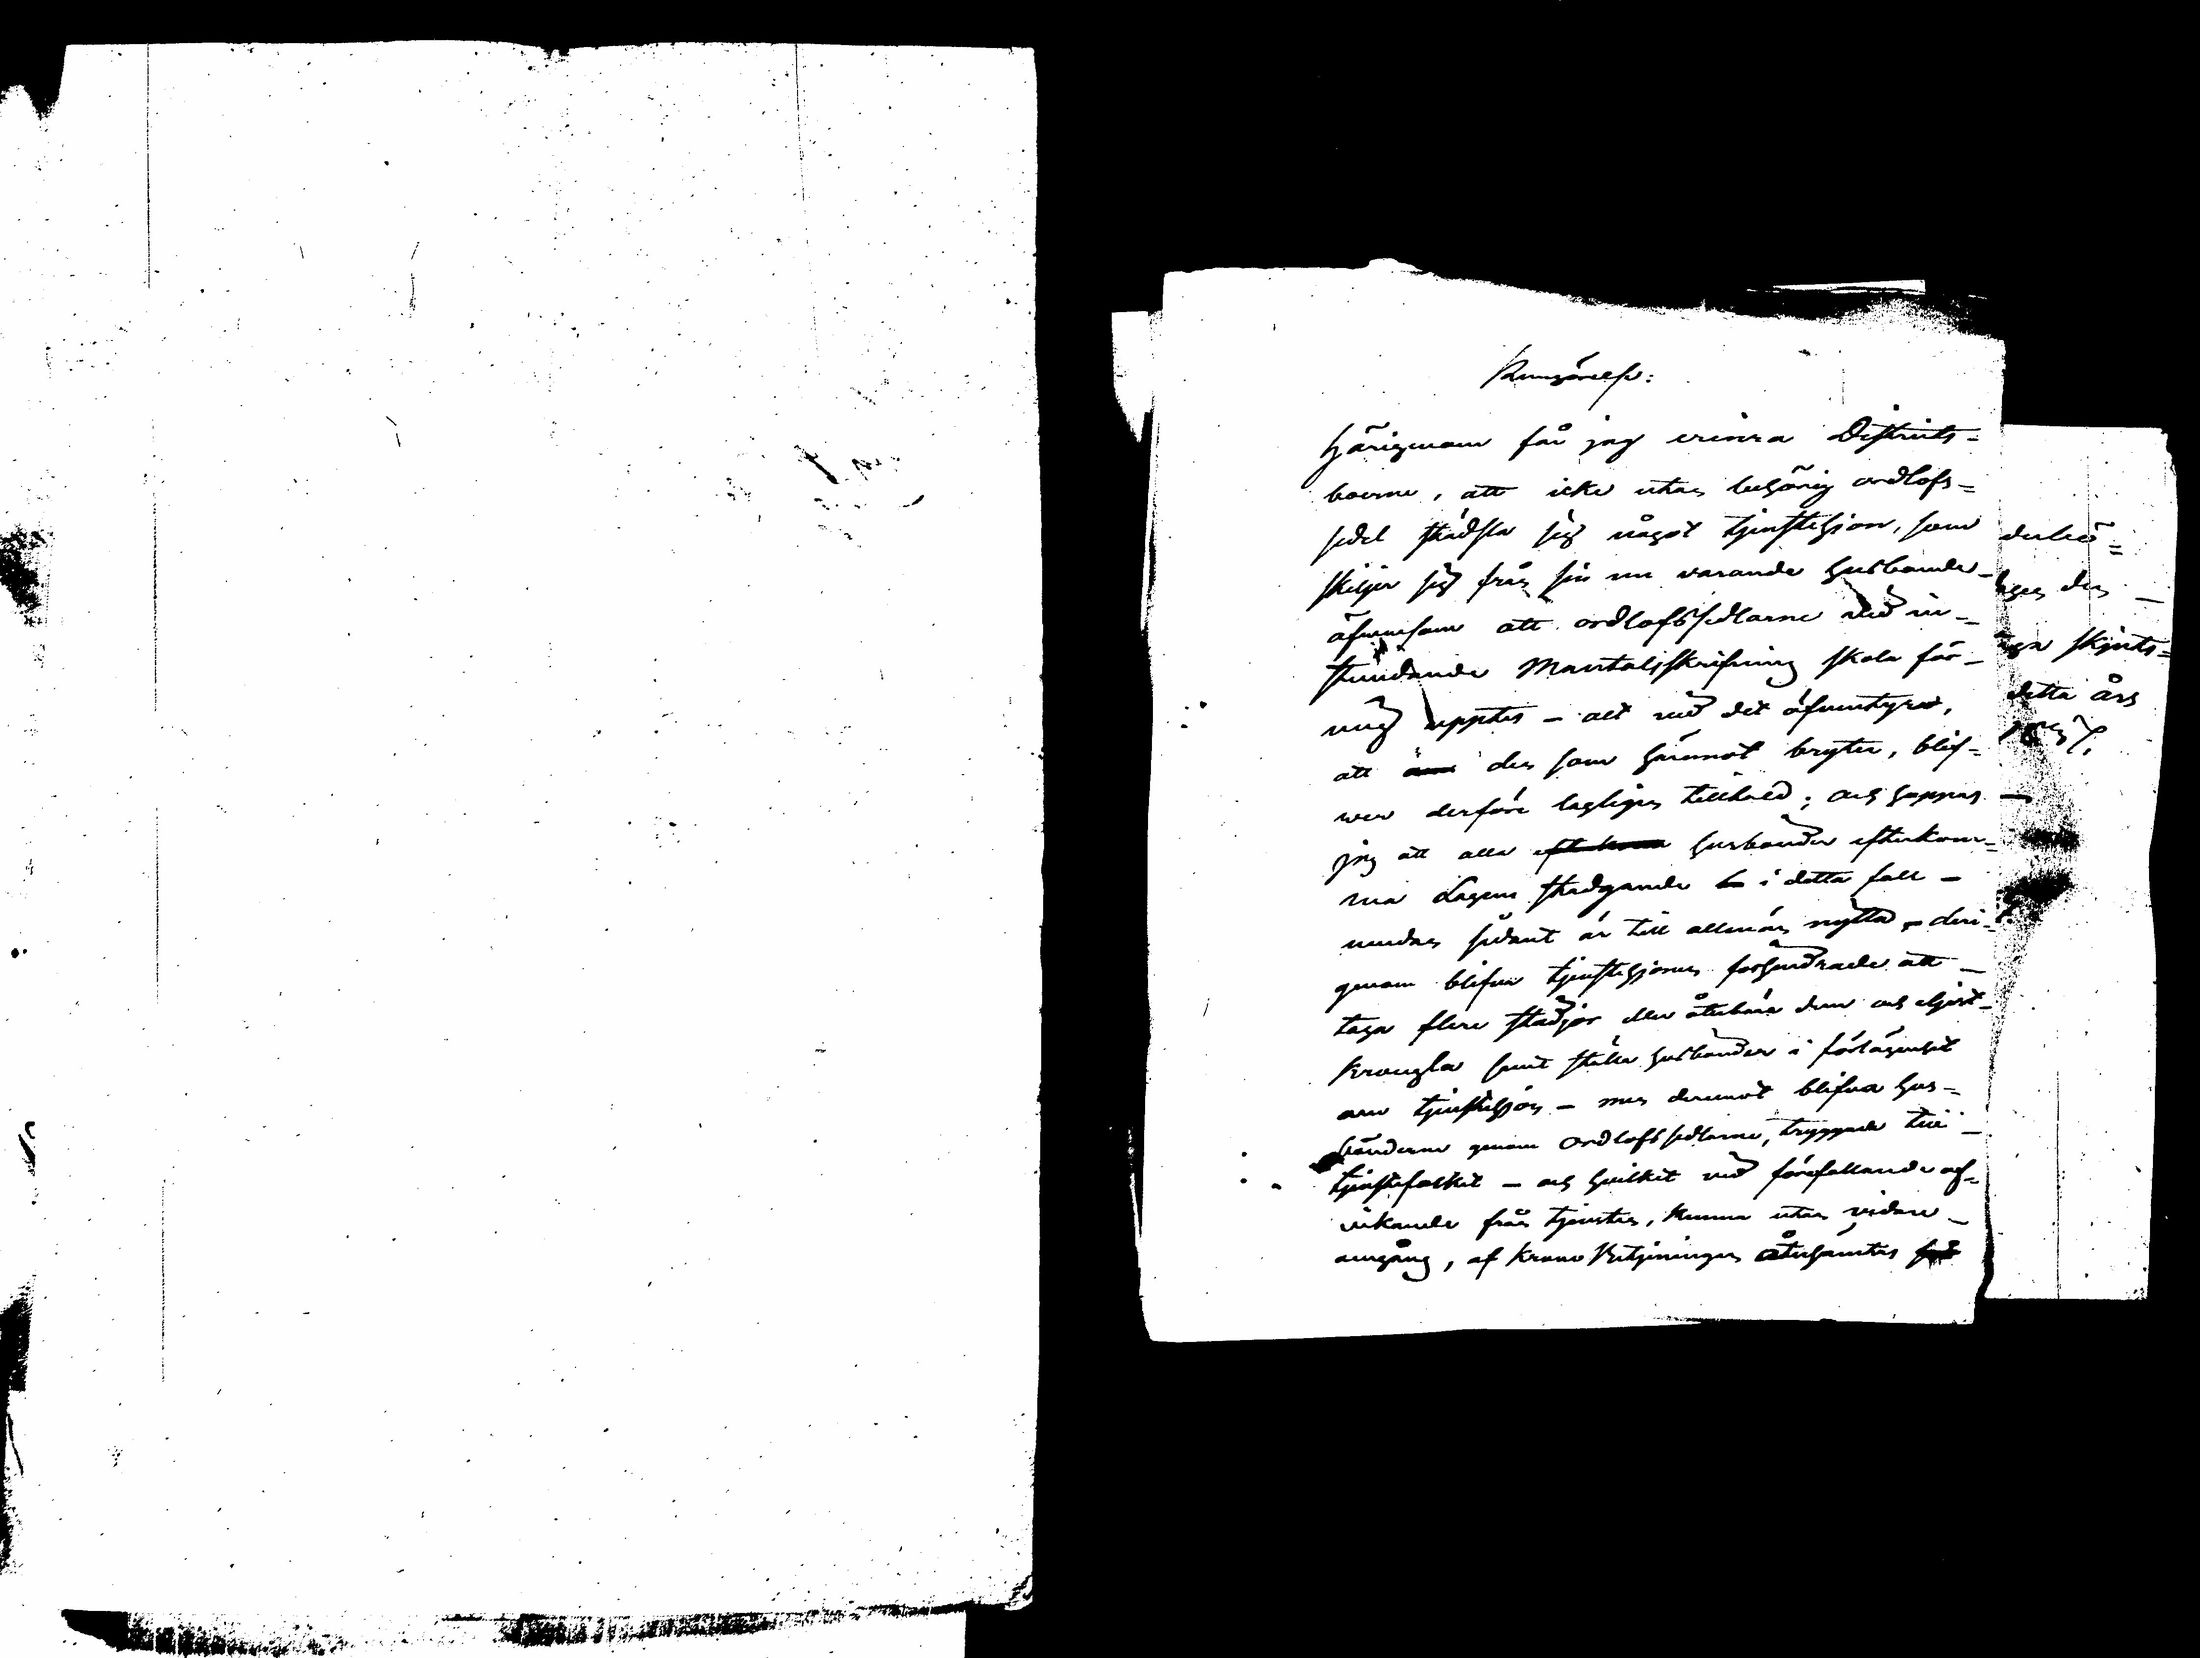 Kungörelse:
Härigenom får jag erinra Districts-
boerne, att icke utan behörig ordlofs-
sedel städsla sig något tjenstehjon, som
skiljer sig från sin nu varande husbonde
äfvensom att ordlofssedlarne vid in-
stundande Mantalsskrifning skola för
mig uppte s - alt vid det äfventyr,
att den som häremot bryter, blif-
wer derföre lagligen tilltald; och hoppas
jag att alla husbönder efterkom-
ma Lagens stadgande i detta fall -
medan sådant är till allmän nytta - deri-
genom blifva tjenstehjonen förhindrade att
taga flere städjor eller återbära dem och eljest
krångla samt ställa husbonden i förlägenhet
om tjenstehjon - men deremot blifva hus-
bönderne genom ordlofssedlarne, tryggade till
tjenstefolket - och hvilket vid förefallande af-
vikande från tjensten, kunna utan vidare
omgång, af Krono Betjeningen återhämtas
derbö=
gen den
ga skjuts=
detta års
1857.